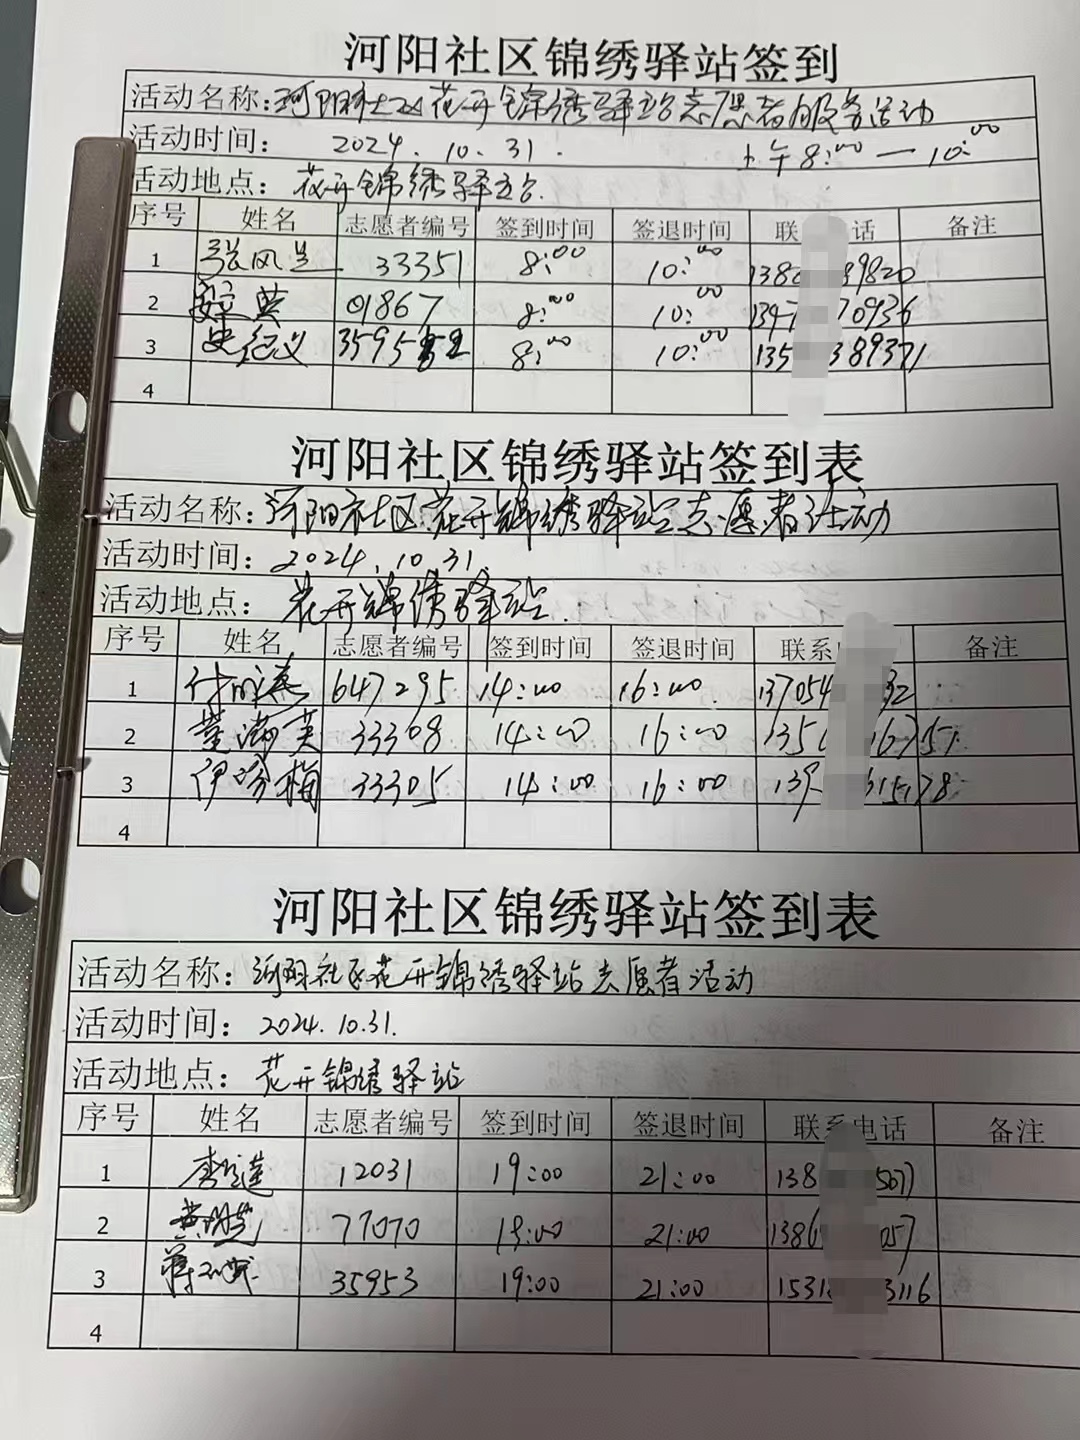 河阳社区锦绣驿站签到
活动名称：河阳社区花开锦绣驿站志愿者服务活动
活动时间： 2024.10.31. 上午8:00—10:00
活动地点：花开锦绣驿站.
序号 姓名 志愿者编号 签到时间 签退时间 联 话 备注
1 张风兰 33351 8:00 10:00 138 39820
2 典 01867 8:00 10:00 1347 70936
3 史纪义 3595 8:00 10:00 135 389371
4
河阳社区锦绣驿站签到表
活动名称：河阳社区花开锦绣驿站志愿者活动
活动时间：2024.10.31.
活动地点： 花开锦绣驿站.
序号 姓名 志愿者编号 签到时间 签退时间 联系 备注
1 付 647295 14:00 16:00 137054 32
2 董满英 33308 14:00 16:00 135 16757
3 伊 梅 33305 14:00 16:00 139 615178
4
河阳社区锦绣驿站签到表
活动名称：河阳社区花开锦绣驿站志愿者活动
活动时间：2024.10.31.
活动地点： 花开锦绣驿站
序号 姓名 志愿者编号 签到时间 签退时间 联系电话 备注
1 李 莲 12031 19:00 21:00 138 5077
2 黄 77070 19:00 21:00 1386 057
3 蒋 35953 19:00 21:00 1531 3116
4